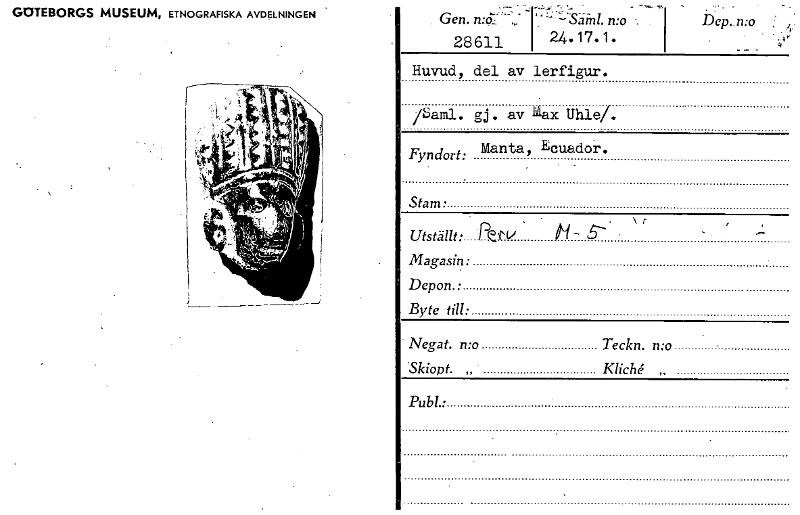 GÖTEBORGS MUSEUM, ETNOGRAFISKA AVDELNINGEN
Gen. n:o Saml. n:o Dep. n:o
28611 24.17.1.
Huvud, del av lerfigur.
/Saml. gj. av Max Uhle/.
Fyndort: Manta, Ecuador.
Stam:
Utställt: Peru M-5
Magasin:
Depon.:
Byte till:
Negat. n:o Teckn. n:o
Skiopt. „ Kliché „
Publ.: